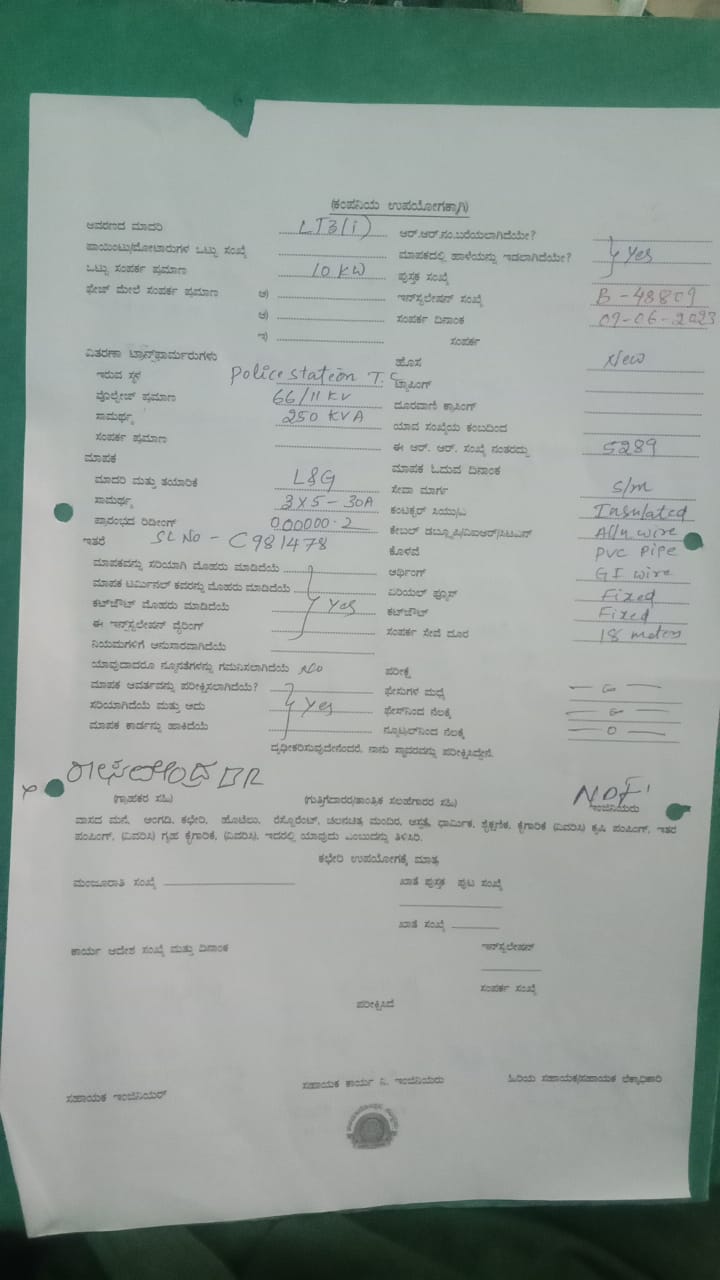 (ಕಂಪನಿಯ ಉಪಯೋಗಕ್ಕಾಗಿ)
ಆವರಣದ ಮಾದರಿ LT3(i) ಆರ್.ಆರ್.ಸಂ.ಬರೆಯಲಾಗಿದೆಯೇ?
ಪಾಯಿಂಟು/ಮೋಟಾರುಗಳ ಒಟ್ಟು ಸಂಖ್ಯೆ ಮಾಪಕದಲ್ಲಿ ಹಾಳೆಯನ್ನು ಇಡಲಾಗಿದೆಯೇ? Yes
ಒಟ್ಟು ಸಂಪರ್ಕ ಪ್ರಮಾಣ 10 KW ಪುಸ್ತಕ ಸಂಖ್ಯೆ
ಫೇಜ್ ಮೇಲೆ ಸಂಪರ್ಕ ಪ್ರಮಾಣ ಅ) ಇನ್‌ಸ್ಟಲೇಷನ್ ಸಂಖ್ಯೆ B-48809
ಆ) ಸಂಪರ್ಕ ದಿನಾಂಕ 09-06-2023
ಇ) ಸಂಪರ್ಕ
ವಿತರಣಾ ಟ್ರಾನ್ಸ್‌ಫಾರ್ಮರುಗಳು ಹೊಸ New
ಇರುವ ಸ್ಥಳ Police station T.C ಟ್ಯಾಪಿಂಗ್
ವೋಲ್ಟೇಜ್ ಪ್ರಮಾಣ 66/11 KV ದೂರವಾಣಿ ಕ್ರಾಸಿಂಗ್
ಸಾಮರ್ಥ್ಯ 250 KVA ಯಾವ ಸಂಖ್ಯೆಯ ಕಂಬದಿಂದ
ಸಂಪರ್ಕ ಪ್ರಮಾಣ ಈ ಆರ್. ಆರ್. ಸಂಖ್ಯೆ ನಂತರದ್ದು 5289
ಮಾಪಕ ಮಾಪಕ ಓದುವ ದಿನಾಂಕ
ಮಾದರಿ ಮತ್ತು ತಯಾರಿಕೆ L&G ಸೇವಾ ಮಾರ್ಗ S/M
ಸಾಮರ್ಥ್ಯ 3X5-30A ಕಂಡಕ್ಟರ್ ಸಿಯು/ಒ Insulated
ಪ್ರಾರಂಭದ ರಿಡೀಂಗ್ 000000.2 ಕೇಬಲ್ Allu wire
ಇತರೆ SL No - C981478 ಕೊಳವೆ PVC Pipe
ಮಾಪಕವನ್ನು ಸರಿಯಾಗಿ ಮೊಹರು ಮಾಡಿದೆಯೆ ಆರ್ಥಿಂಗ್ GI wire
ಮಾಪಕ ಟರ್ಮಿನಲ್ ಕವರನ್ನು ಮೊಹರು ಮಾಡಿದೆಯೆ ಏರಿಯಲ್ ಫ್ಯೂಸ್ Fixed
ಕಟ್‌ಔಟ್ ಮೊಹರು ಮಾಡಿದೆಯೆ Yes ಕಟ್‌ಔಟ್ Fixed
ಈ ಇನ್‌ಸ್ಟಲೇಷನ್ ವೈರಿಂಗ್ ಸಂಪರ್ಕ ಸೇವೆ ದೂರ 18 meters
ನಿಯಮಗಳಿಗೆ ಅನುಸಾರವಾಗಿದೆಯೆ
ಯಾವುದಾದರೂ ನ್ಯೂನತೆಗಳನ್ನು ಗಮನಿಸಲಾಗಿದೆಯೆ No ಪರೀಕ್ಷೆ
ಮಾಪಕ ಆವರ್ತವನ್ನು ಪರೀಕ್ಷಿಸಲಾಗಿದೆಯೆ? ಫೇಸುಗಳ ಮಧ್ಯೆ
ಸರಿಯಾಗಿದೆಯೆ ಮತ್ತು ಅದು Yes ಫೇಸ್‌ನಿಂದ ನೆಲಕ್ಕೆ
ಮಾಪಕ ಕಾರ್ಡನ್ನು ಹಾಕಿದೆಯೆ ನ್ಯೂಟ್ರಲ್‌ನಿಂದ ನೆಲಕ್ಕೆ
ದೃಢೀಕರಿಸುವುದೇನೆಂದರೆ, ನಾನು ಸ್ಥಾವರವನ್ನು ಪರೀಕ್ಷಿಸಿದ್ದೇನೆ.
(ಗ್ರಾಹಕರ ಸಹಿ) (ಗುತ್ತಿಗೆದಾರರ/ತಾಂತ್ರಿಕ ಸಲಹೆಗಾರರ ಸಹಿ) ಇಂಜಿನಿಯರು
ವಾಸದ ಮನೆ, ಅಂಗಡಿ, ಕಛೇರಿ, ಹೊಟೇಲು, ರೆಸ್ಟೋರೆಂಟ್, ಚಲನಚಿತ್ರ ಮಂದಿರ, ಆಸ್ಪತ್ರೆ, ಧಾರ್ಮಿಕ, ಶೈಕ್ಷಣಿಕ, ಕೈಗಾರಿಕೆ (ವಿವರಿಸಿ) ಕೃಷಿ ಪಂಪಿಂಗ್, ಇತರೆ
ಪಂಪಿಂಗ್, (ವಿವರಿಸಿ) ಗೃಹ ಕೈಗಾರಿಕೆ, (ವಿವರಿಸಿ), ಇದರಲ್ಲಿ ಯಾವುದು ಎಂಬುದನ್ನು ತಿಳಿಸಿರಿ.
ಕಛೇರಿ ಉಪಯೋಗಕ್ಕೆ ಮಾತ್ರ
ಮಂಜೂರಾತಿ ಸಂಖ್ಯೆ ಖಾತೆ ಪುಸ್ತಕ ಪುಟ ಸಂಖ್ಯೆ
ಖಾತೆ ಸಂಖ್ಯೆ
ಕಾರ್ಯ ಆದೇಶ ಸಂಖ್ಯೆ ಮತ್ತು ದಿನಾಂಕ ಇನ್‌ಸ್ಟಲೇಷನ್
ಸಂಪರ್ಕ ಸಂಖ್ಯೆ
ಪರೀಕ್ಷಿಸಿದೆ
ಸಹಾಯಕ ಇಂಜಿನಿಯರ್ ಸಹಾಯಕ ಕಾರ್ಯ ನಿ. ಇಂಜಿನಿಯರು ಹಿರಿಯ ಸಹಾಯಕ/ಸಹಾಯಕ ಲೆಕ್ಕಾಧಿಕಾರಿ